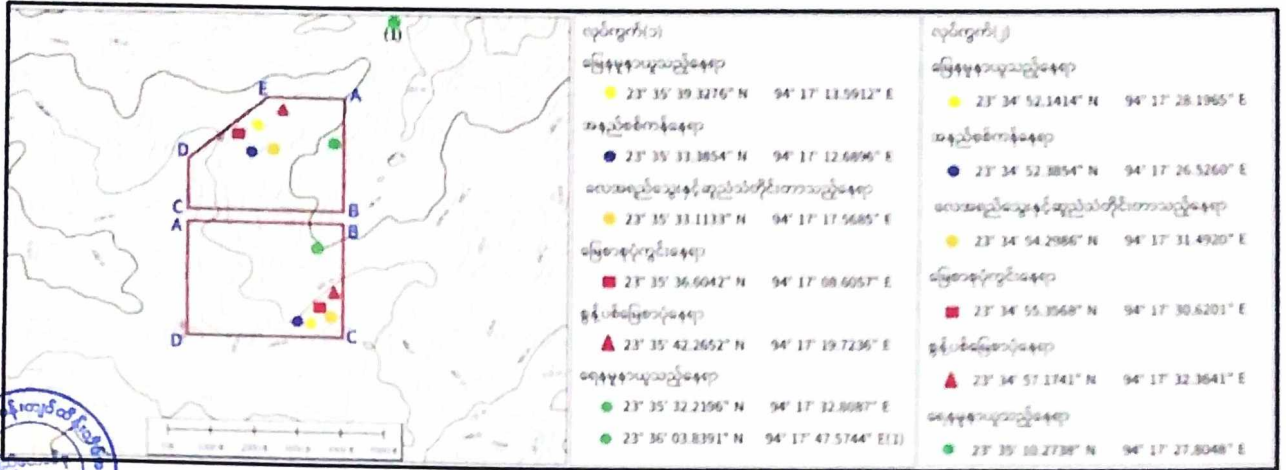 (1)
E
A
D
C
B
A
B
D
C
လုပ်ကွက်(၁)
မြေနမူနာယူသည့်နေရာ
23° 35' 39.3276" N 94° 17' 13.5912" E
အနည်စစ်ကန်နေရာ
23° 35' 33.3854" N 94° 17' 12.6896" E
လေအရည်သွေးနှင့်ဆူညံသံတိုင်းတာသည့်နေရာ
23° 35' 33.1133" N 94° 17' 17.5685" E
မြေစာစုပုံကွင်းနေရာ
23° 35' 36.6042" N 94° 17' 08.6057" E
စွန့်ပစ်မြေစာပုံနေရာ
23° 35' 42.2652" N 94° 17' 19.7236" E
ရေနမူနာယူသည့်နေရာ
23° 35' 32.2196" N 94° 17' 32.8087" E
23° 36' 03.8391" N 94° 17' 47.5744" E(1)
လုပ်ကွက်(၂)
မြေနမူနာယူသည့်နေရာ
23° 34' 52.1414" N 94° 17' 28.1965" E
အနည်စစ်ကန်နေရာ
23° 34' 52.3854" N 94° 17' 26.5260" E
လေအရည်သွေးနှင့်ဆူညံသံတိုင်းတာသည့်နေရာ
23° 34' 54.2986" N 94° 17' 31.4920" E
မြေစာစုပုံကွင်းနေရာ
23° 34' 55.3568" N 94° 17' 30.6201" E
စွန့်ပစ်မြေစာပုံနေရာ
23° 34' 57.1741" N 94° 17' 32.3641" E
ရေနမူနာယူသည့်နေရာ
23° 35' 10.2738" N 94° 17' 27.8048" E